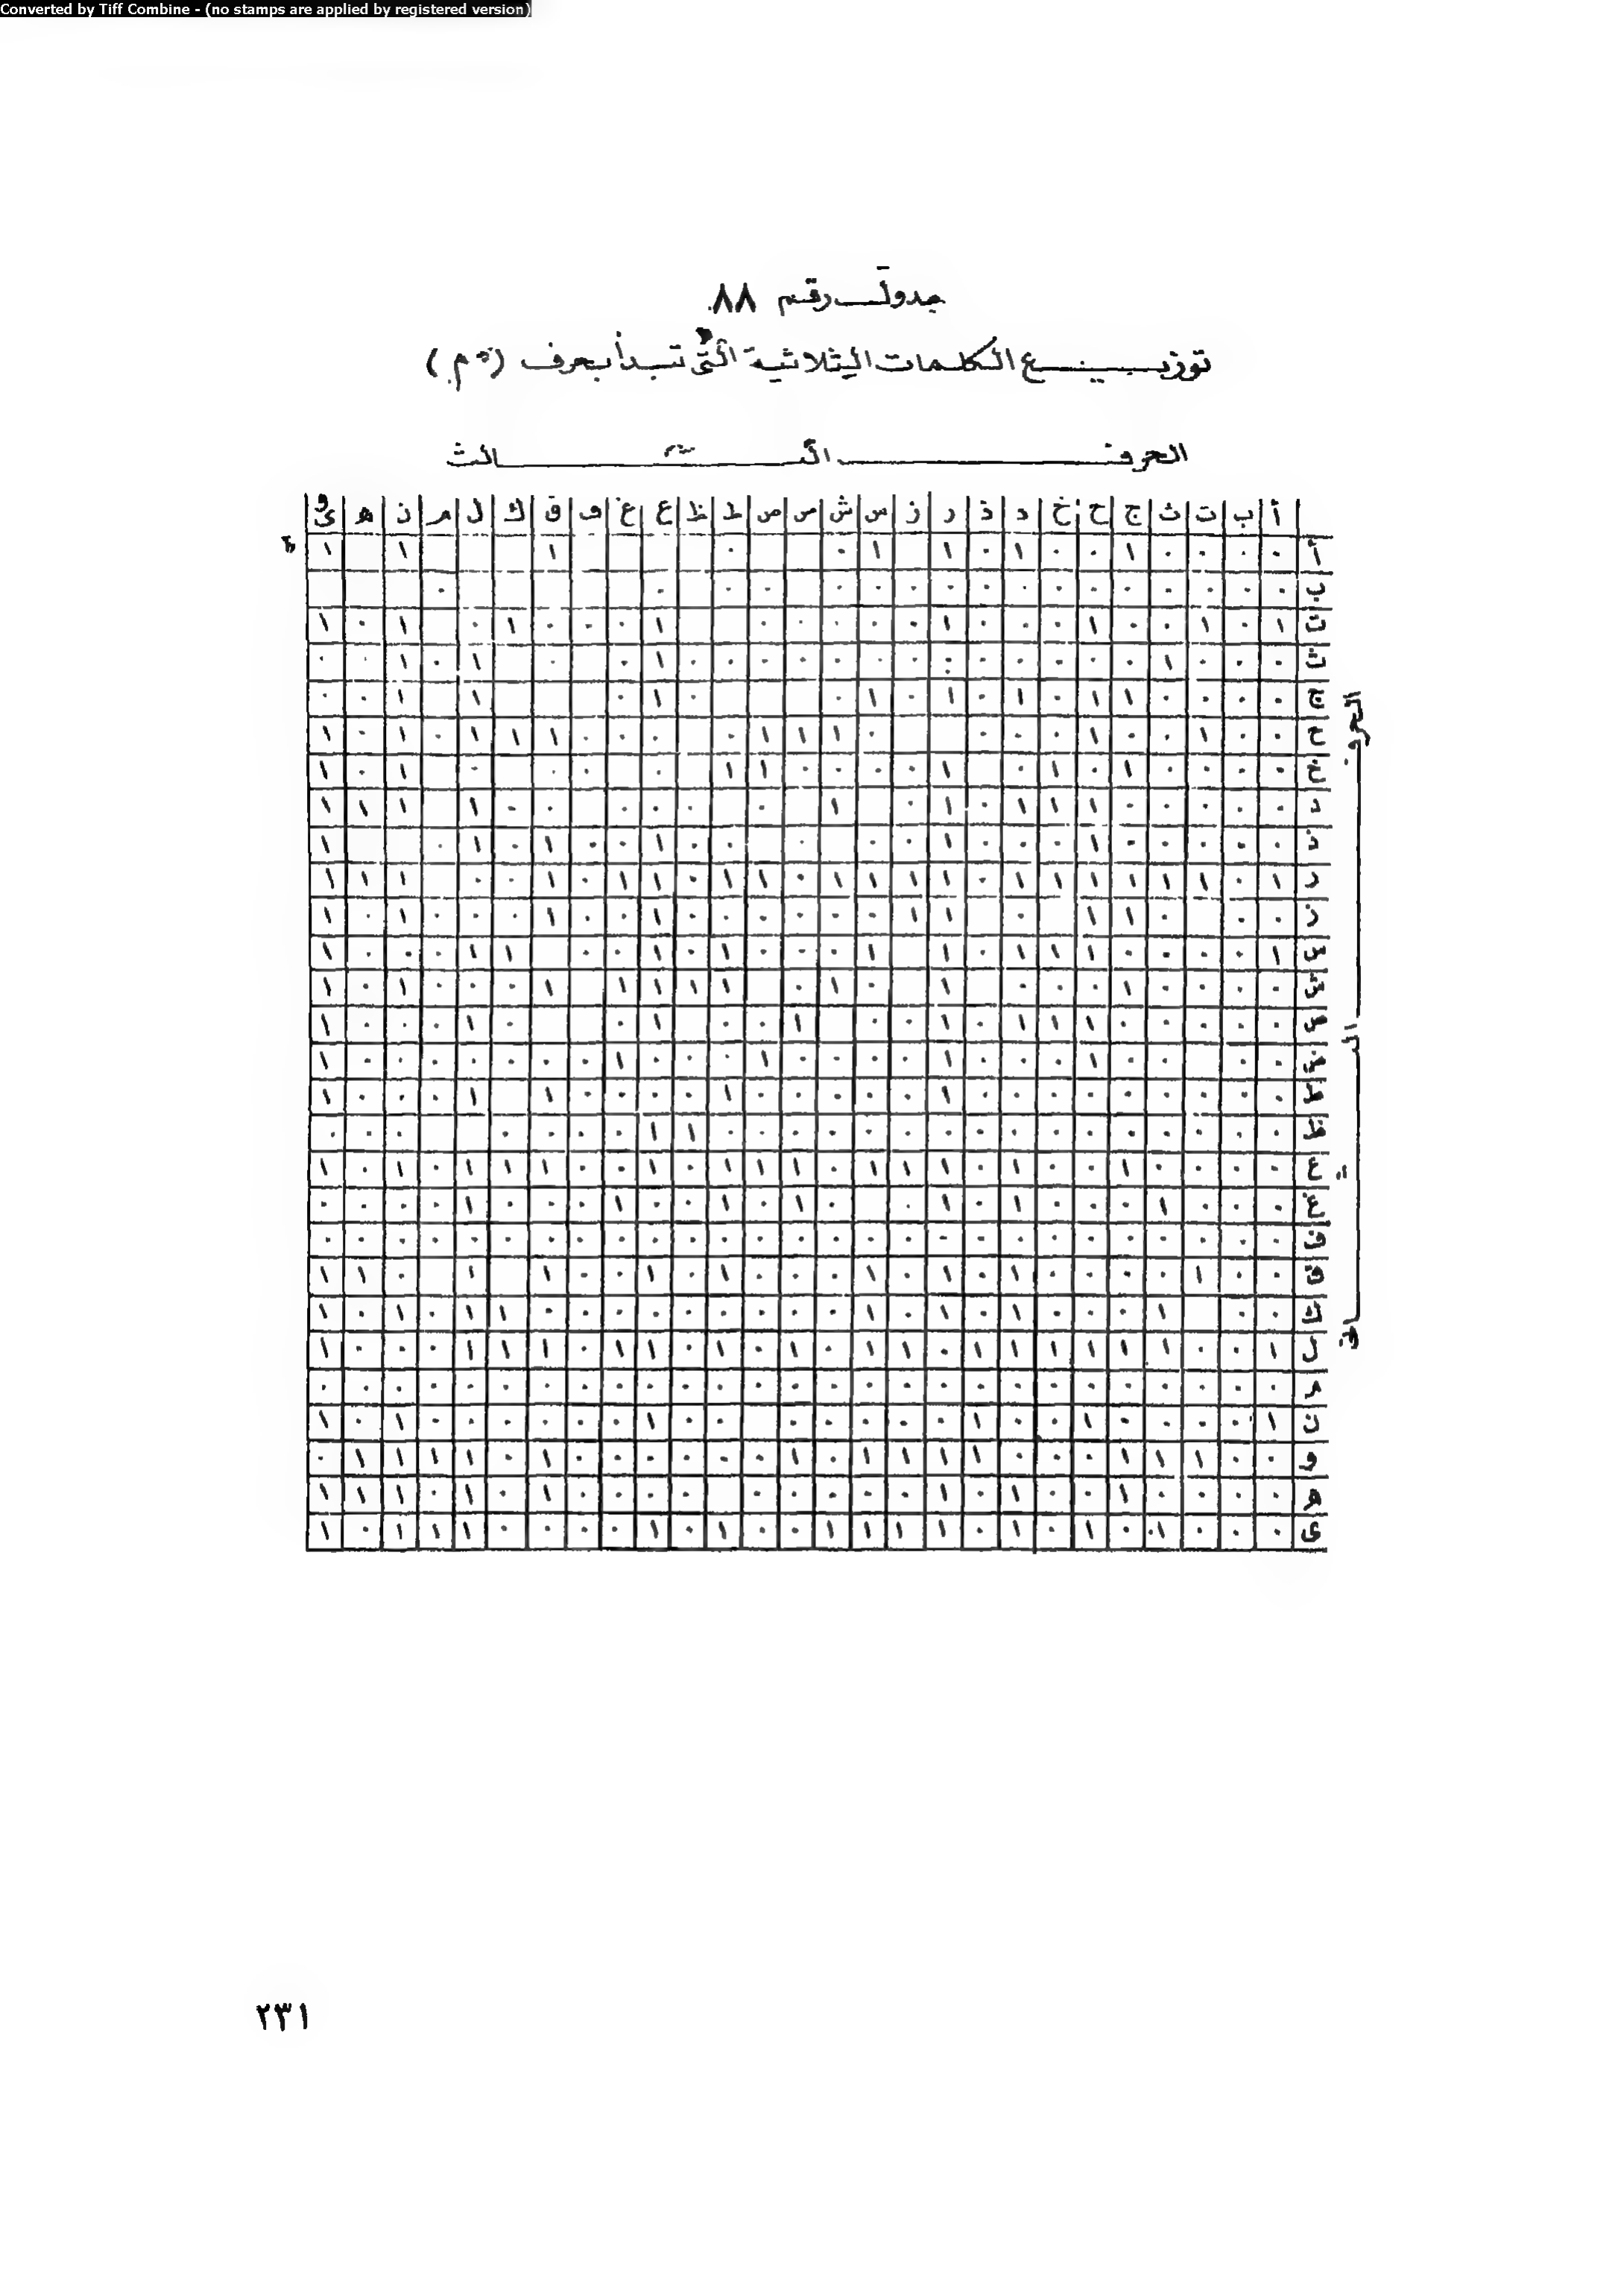 جدول رقم ٨٨
توزيع الكلمات الثلاثية التى تبدأ بحرف (م)
الحرف الثالث
أ ب ت ث ج ح خ د ذ ر ز س ش ص ض ط ظ ع غ ف ق ك ل م ن ه و ى
الحرف الثانى
أ ٠ ٠ ٠ ٠ ١ ٠ ٠ ١ ٠ ١ ١ ٠ ٠ ١ ١ ١
ب ٠ ٠ ٠ ٠ ٠ ٠ ٠ ٠ ٠ ٠ ٠ ٠ ٠ ٠ ٠ ٠ ٠
ت ١ ٠ ١ ٠ ٠ ١ ٠ ٠ ٠ ١ ٠ ٠ ٠ ٠ ٠ ١ ٠ ٠ ٠ ١ ٠ ١ ٠ ١
ث ٠ ٠ ٠ ١ ٠ ٠ ٠ ٠ ٠ ٠ ٠ ٠ ٠ ٠ ٠ ٠ ٠ ١ ٠ ٠ ١ ٠ ١ ٠ ٠
ج ٠ ٠ ٠ ٠ ١ ١ ٠ ١ ٠ ١ ٠ ١ ٠ ٠ ١ ٠ ١ ١ ٠ ٠
ح ٠ ٠ ١ ٠ ٠ ١ ٠ ٠ ٠ ٠ ١ ١ ١ ٠ ٠ ٠ ٠ ١ ١ ١ ٠ ١ ٠ ١
خ ٠ ٠ ٠ ٠ ١ ٠ ١ ٠ ١ ٠ ٠ ٠ ٠ ١ ١ ٠ ٠ ٠ ٠ ١ ٠ ١
د ٠ ٠ ٠ ٠ ٠ ١ ١ ١ ٠ ١ ٠ ١ ٠ ٠ ٠ ٠ ٠ ٠ ١ ١ ١ ١
ذ ٠ ٠ ٠ ٠ ٠ ١ ٠ ٠ ٠ ١ ٠ ٠ ٠ ٠ ٠ ٠ ١ ٠ ٠ ١ ٠ ١ ٠ ١
ر ١ ٠ ١ ١ ١ ١ ١ ١ ٠ ١ ١ ١ ١ ٠ ١ ١ ٠ ١ ١ ٠ ١ ٠ ٠ ١ ١ ١
ز ٠ ٠ ٠ ١ ١ ٠ ١ ١ ٠ ٠ ٠ ٠ ٠ ٠ ١ ٠ ٠ ١ ٠ ٠ ٠ ١ ٠ ١
س ١ ٠ ٠ ٠ ٠ ١ ١ ١ ٠ ١ ١ ٠ ٠ ٠ ١ ٠ ١ ٠ ٠ ١ ١ ٠ ٠ ٠ ١
ش ٠ ٠ ٠ ٠ ١ ٠ ٠ ٠ ١ ٠ ١ ٠ ١ ١ ١ ١ ١ ٠ ٠ ٠ ١ ٠ ١
ص ٠ ٠ ٠ ٠ ٠ ١ ١ ١ ٠ ١ ٠ ٠ ١ ٠ ٠ ١ ٠ ٠ ١ ٠ ٠ ٠ ١
ض ٠ ٠ ٠ ٠ ١ ٠ ٠ ٠ ١ ٠ ٠ ٠ ٠ ١ ٠ ٠ ٠ ١ ٠ ٠ ٠ ٠ ٠ ٠ ٠ ١
ط ٠ ٠ ٠ ٠ ٠ ٠ ٠ ٠ ٠ ١ ٠ ٠ ٠ ٠ ٠ ١ ٠ ٠ ٠ ٠ ١ ١ ٠ ٠ ٠ ١
ظ ٠ ٠ ٠ ٠ ٠ ٠ ٠ ٠ ٠ ٠ ٠ ٠ ٠ ٠ ٠ ٠ ١ ١ ٠ ٠ ٠ ٠ ٠ ٠ ٠
ع ٠ ٠ ٠ ٠ ١ ٠ ٠ ١ ٠ ١ ١ ١ ٠ ١ ١ ١ ٠ ١ ٠ ٠ ١ ١ ١ ٠ ١ ٠ ١
غ ٠ ٠ ٠ ١ ٠ ٠ ٠ ١ ٠ ١ ٠ ٠ ١ ٠ ١ ٠ ٠ ١ ٠ ٠ ٠ ١ ٠ ٠ ٠ ٠
ف ٠ ٠ ٠ ٠ ٠ ٠ ٠ ٠ ٠ ٠ ٠ ٠ ٠ ٠ ٠ ٠ ٠ ٠ ٠ ٠ ٠ ٠ ٠ ٠ ٠ ٠ ٠
ق ٠ ٠ ١ ٠ ٠ ٠ ٠ ١ ٠ ١ ٠ ١ ٠ ٠ ٠ ١ ٠ ١ ٠ ٠ ١ ١ ٠ ١ ١
ك ٠ ٠ ١ ٠ ٠ ٠ ١ ٠ ١ ٠ ١ ٠ ٠ ٠ ٠ ٠ ٠ ٠ ٠ ٠ ١ ١ ٠ ١ ٠ ١
ل ١ ٠ ٠ ١ ١ ١ ١ ١ ١ ٠ ١ ١ ٠ ١ ٠ ١ ٠ ١ ١ ٠ ١ ١ ١ ٠ ٠ ٠ ١
م ٠ ٠ ٠ ٠ ٠ ٠ ٠ ٠ ٠ ٠ ٠ ٠ ٠ ٠ ٠ ٠ ٠ ٠ ٠ ٠ ٠ ٠ ٠ ٠ ٠ ٠ ٠
ن ١ ٠ ٠ ٠ ٠ ١ ٠ ٠ ١ ٠ ٠ ٠ ٠ ٠ ٠ ٠ ١ ٠ ٠ ٠ ٠ ٠ ٠ ١ ٠ ١
و ٠ ٠ ١ ١ ١ ٠ ٠ ٠ ١ ١ ١ ١ ٠ ١ ٠ ٠ ٠ ٠ ٠ ٠ ١ ٠ ١ ١ ١ ١ ٠
ه ٠ ٠ ٠ ٠ ١ ٠ ٠ ١ ٠ ١ ٠ ٠ ٠ ٠ ٠ ٠ ٠ ٠ ٠ ١ ٠ ١ ٠ ١ ١ ١
ى ٠ ٠ ٠ ١ ٠ ١ ٠ ١ ٠ ١ ١ ١ ١ ٠ ٠ ١ ٠ ١ ٠ ٠ ٠ ٠ ١ ١ ١ ٠ ١
٢٣١
Converted by Tiff Combine - (no stamps are applied by registered version)